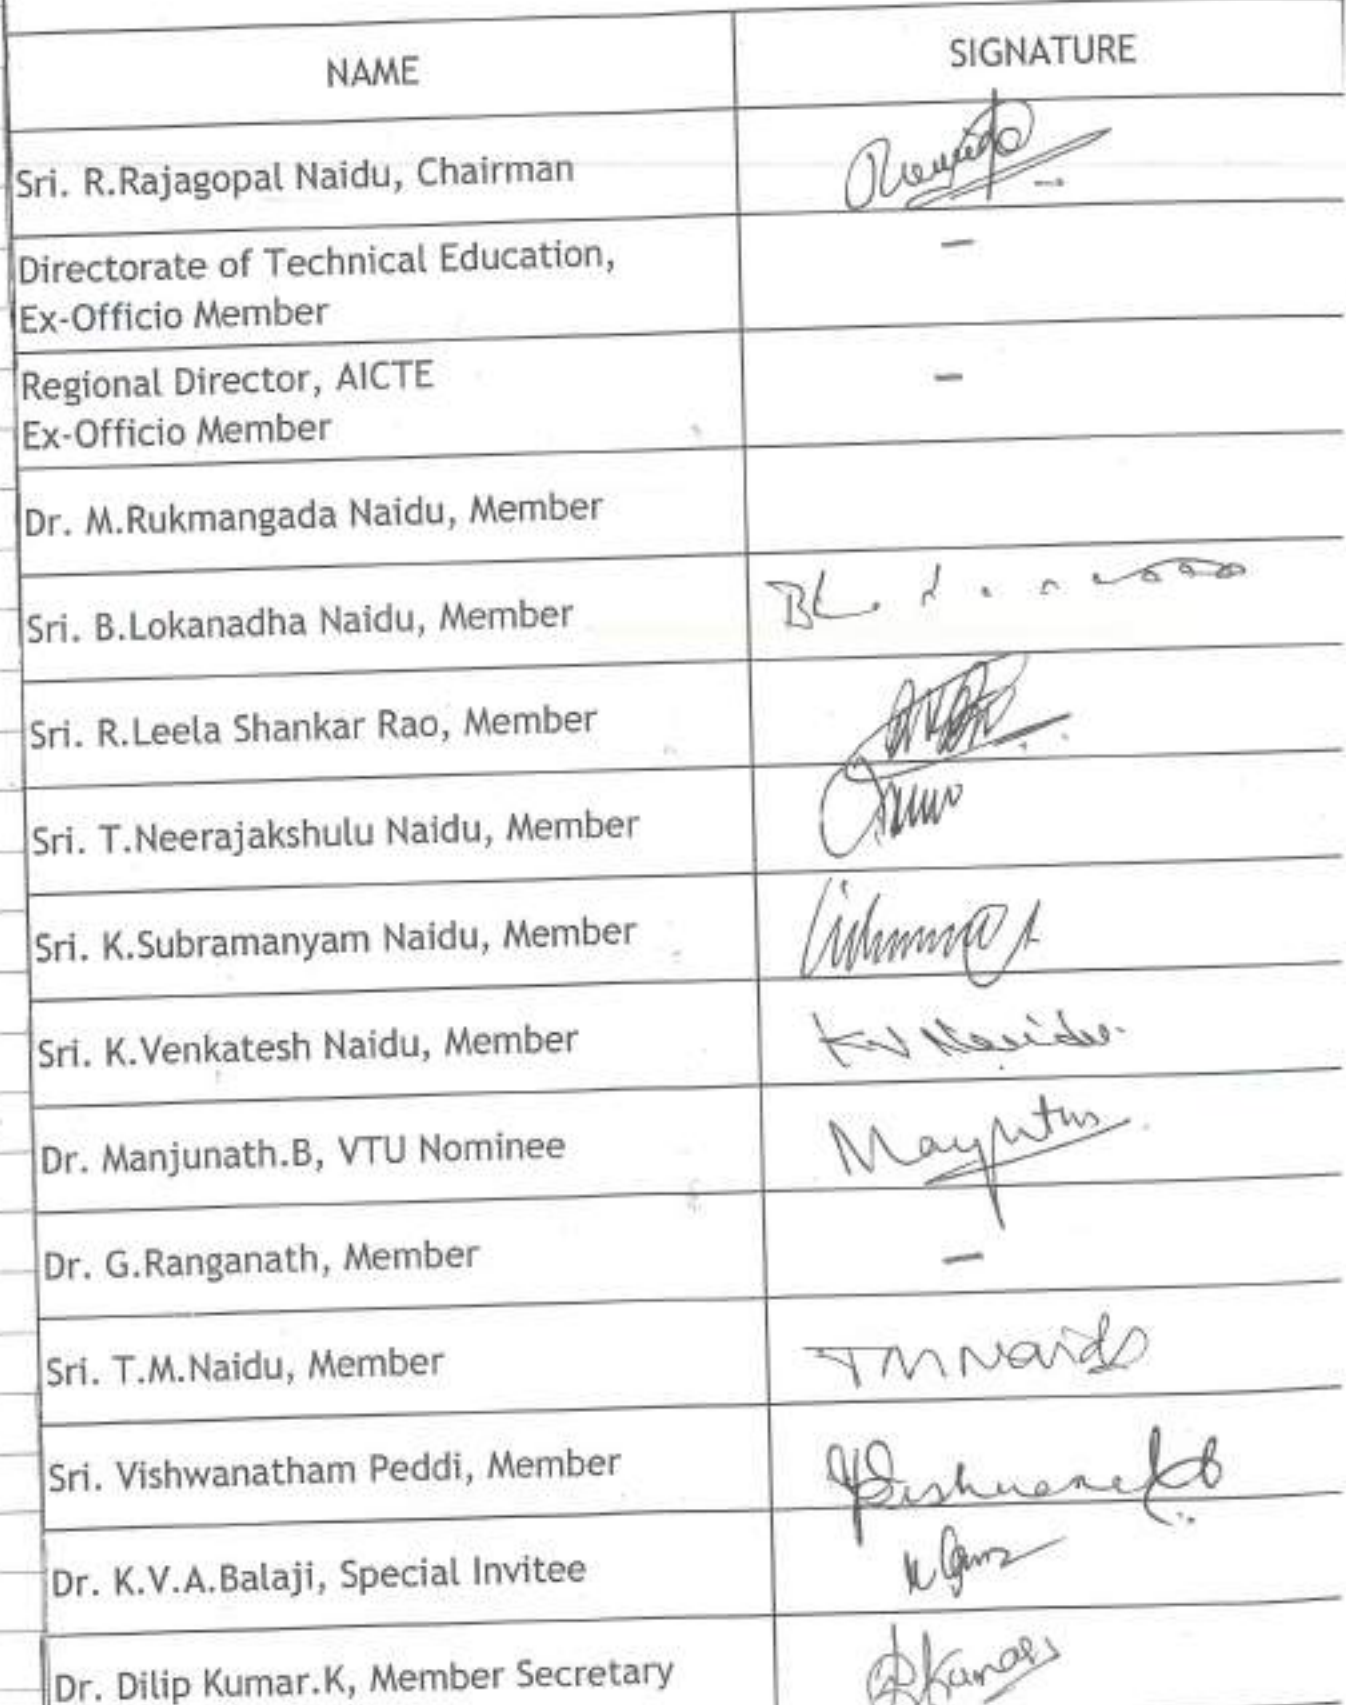 NAME
SIGNATURE
Sri. R.Rajagopal Naidu, Chairman
Directorate of Technical Education,
Ex-Officio Member
–
Regional Director, AICTE
Ex-Officio Member
–
Dr. M.Rukmangada Naidu, Member
Sri. B.Lokanadha Naidu, Member
Sri. R.Leela Shankar Rao, Member
Sri. T.Neerajakshulu Naidu, Member
Sri. K.Subramanyam Naidu, Member
Sri. K.Venkatesh Naidu, Member
KV Naidu
Dr. Manjunath.B, VTU Nominee
Dr. G.Ranganath, Member
–
Sri. T.M.Naidu, Member
TM Naidu
Sri. Vishwanatham Peddi, Member
Dr. K.V.A.Balaji, Special Invitee
Dr. Dilip Kumar.K, Member Secretary